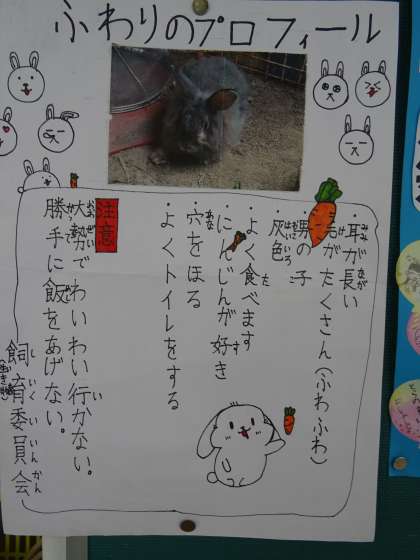 ふわりのプロフィール
・耳が長い
・毛がたくさん(ふわふわ)
・男の子
・灰色
・よく食べます
・にんじんが好き
・穴をほる
・よくトイレをする
注意
大勢でわいわい行かない。
勝手に飯をあげない。
飼育委員会